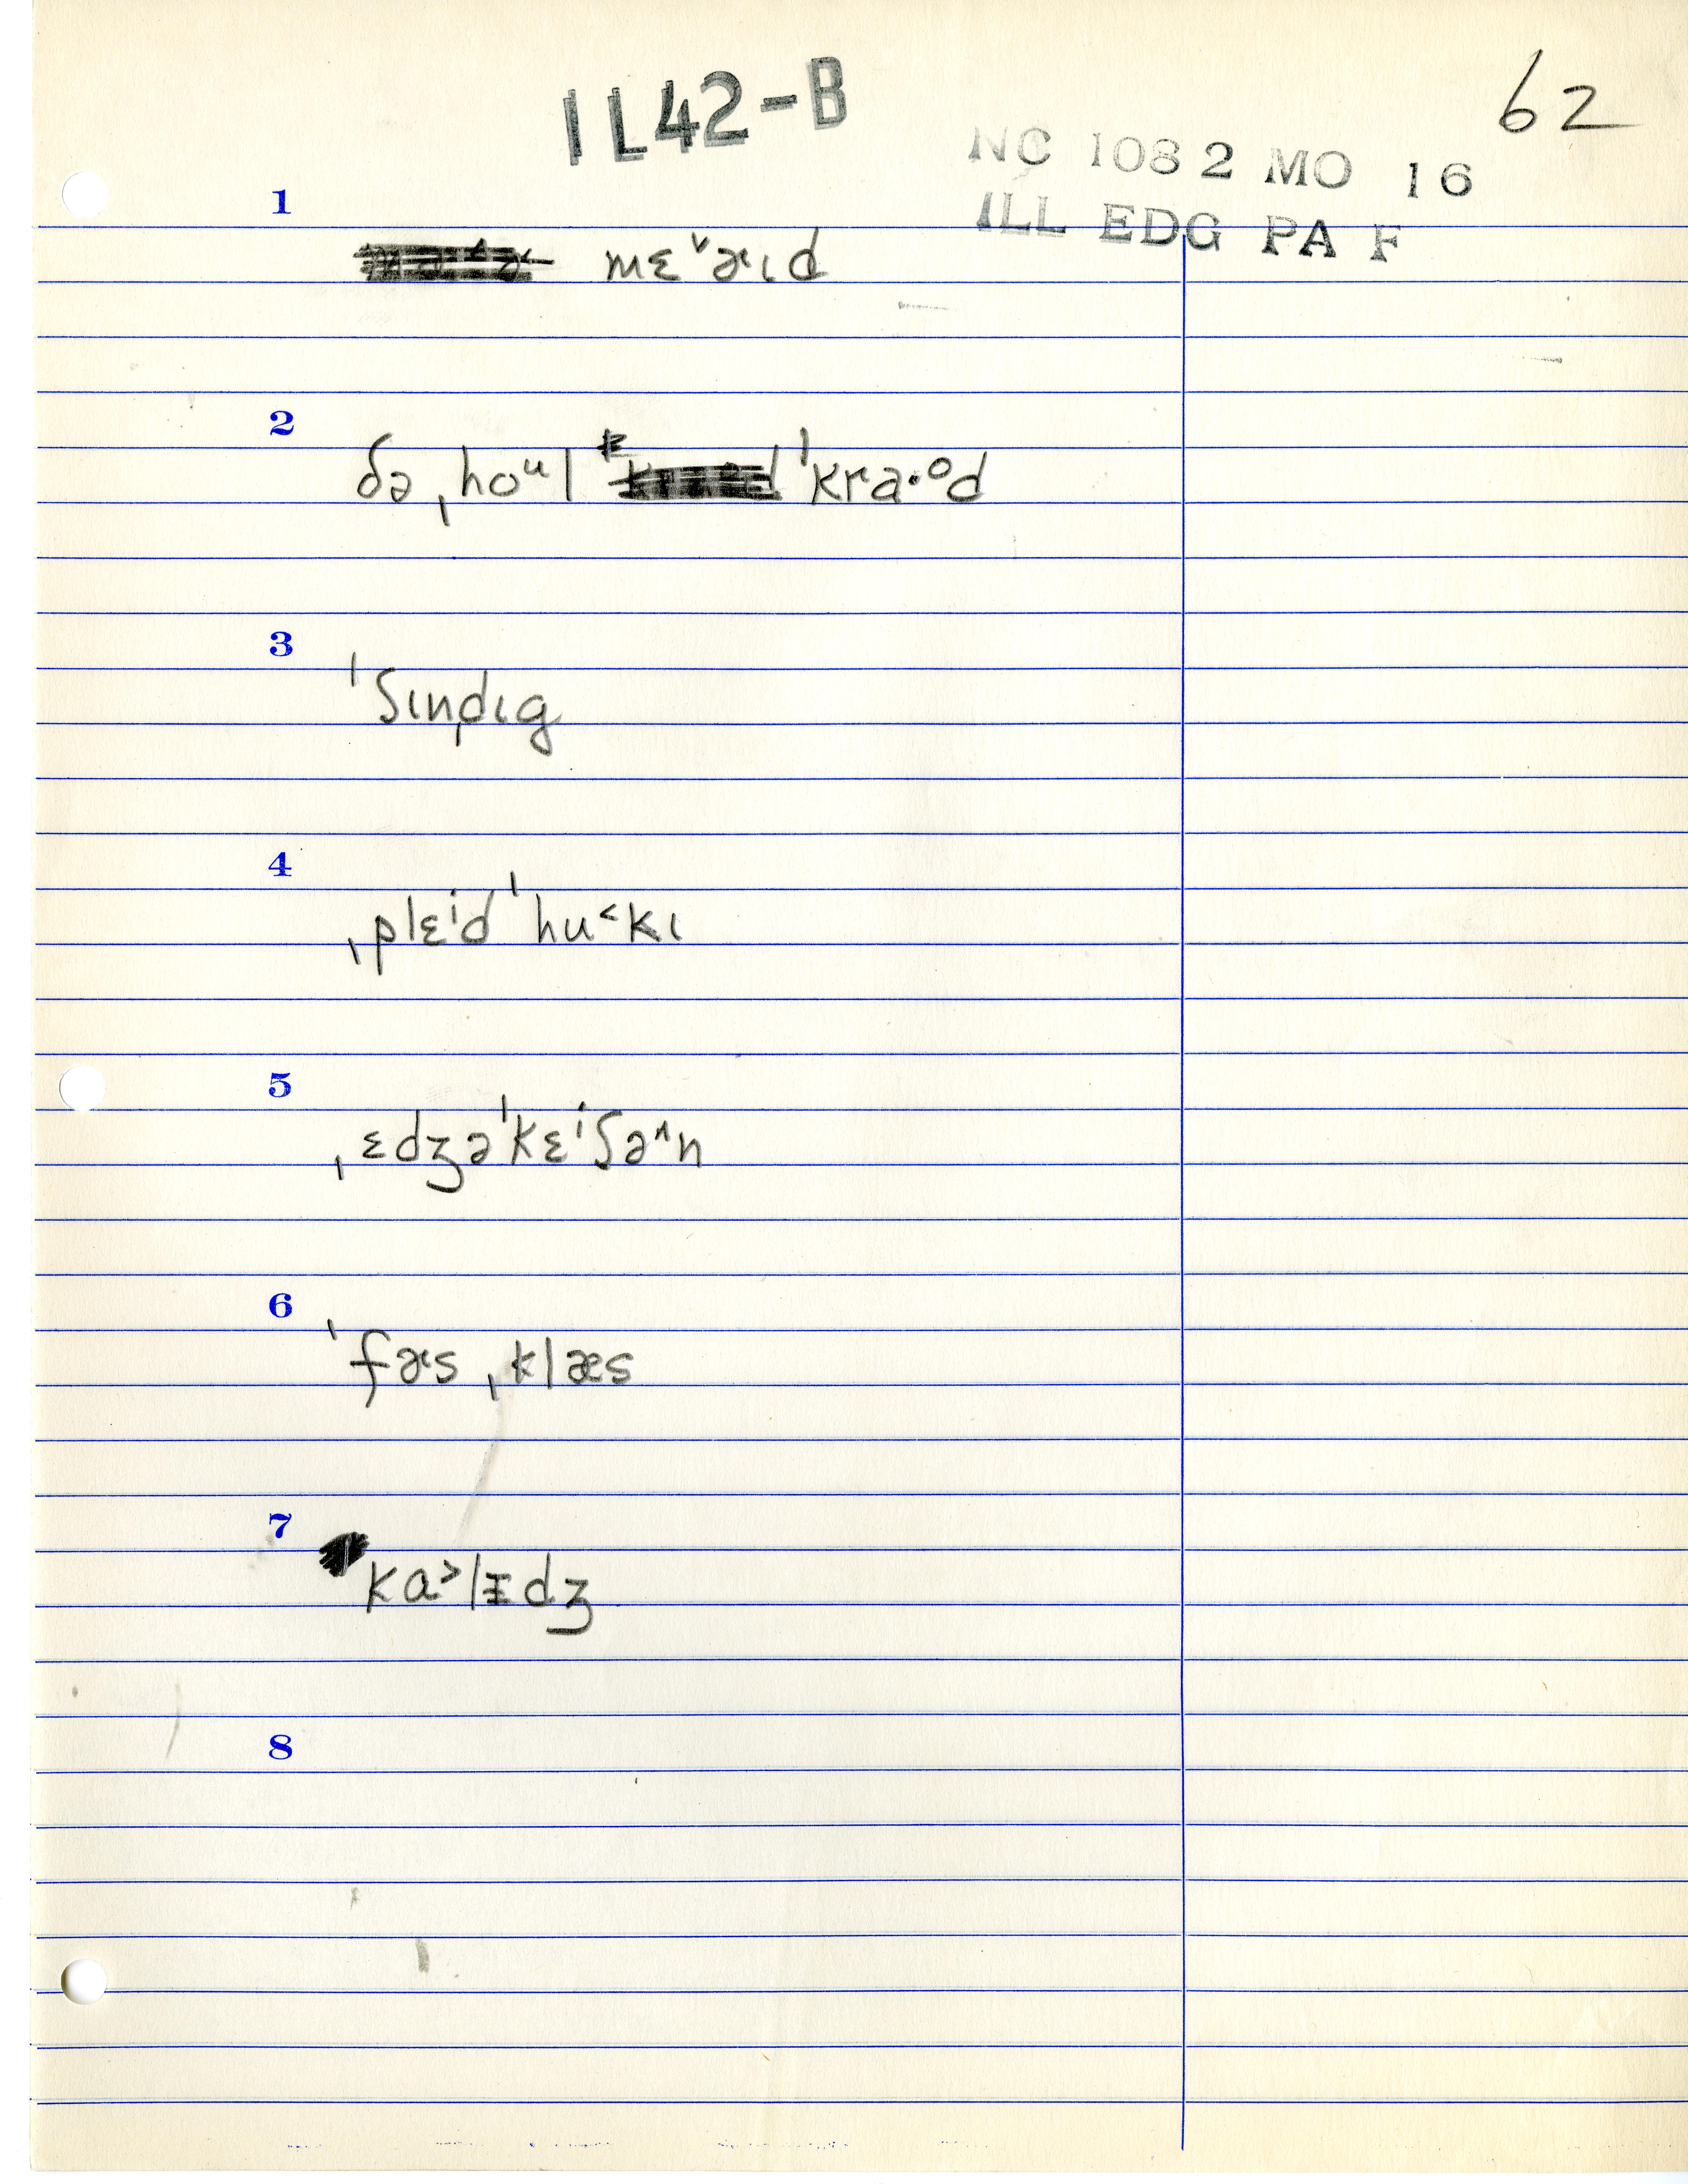 IL42-B
62
NC 1082 MO 16
ILL EDG PA F
1
mɛ˅ɚɩd
2
ðə ˌhoᵘl ˈkra·ᵒd
3
ˈʃɩnˌdɩg
4
ˌplɛⁱd ˈhu˂kɩ
5
ˌɛdʒəˈkɛⁱʃə˄n
6
ˈfɚs ˌklæs
7
kɑ˃lɪ̵dʒ
8